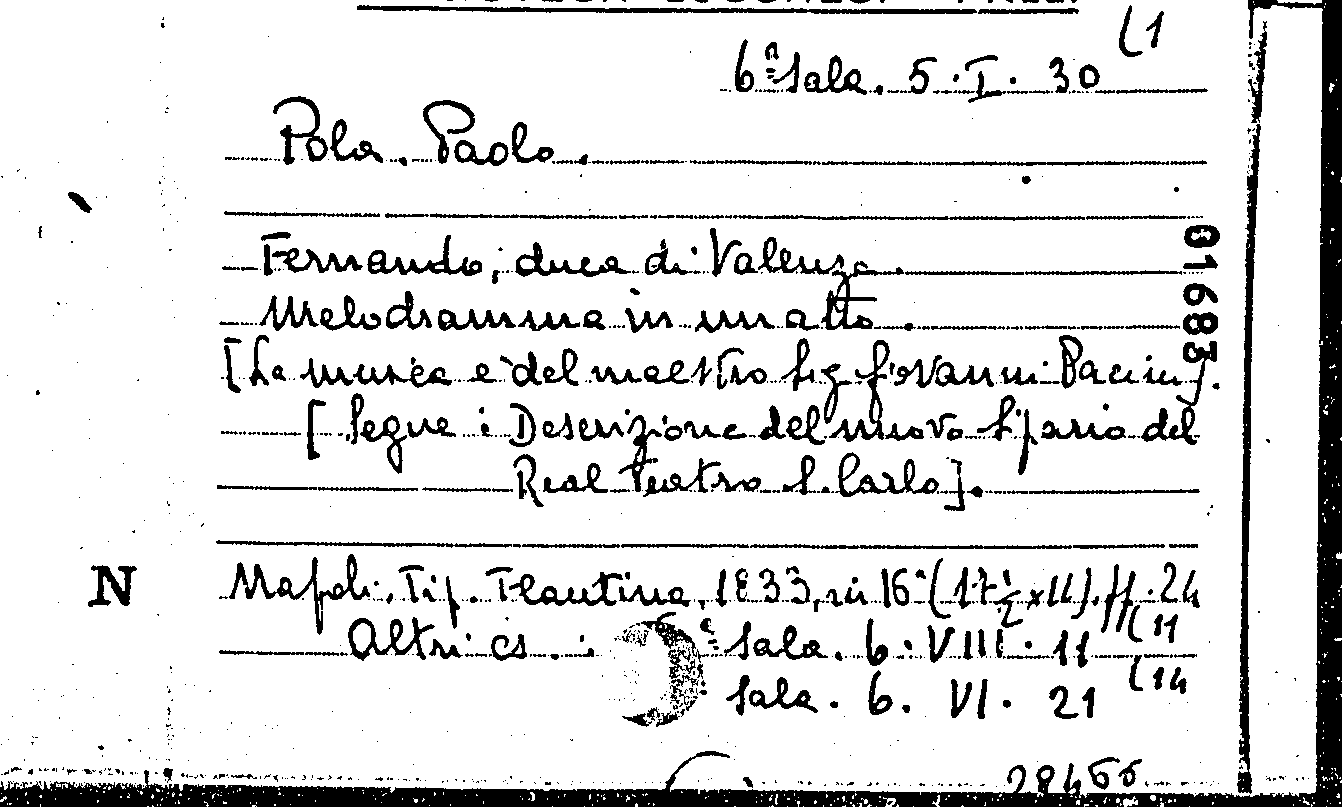 6ª Sala. 5.I.30 (1
Pola. Paolo.
Fernando, duca di Valenza.
Melodramma in un atto.
[La musica è del maestro Sig Giovanni Pacini].
[Segue : Descrizione del nuovo Sipario del
Real Teatro S. Carlo].
01683
N
Napoli, Tip. Flautina, 1833, in 16° (17½x11). pp. 24
Altri es. : Sala. 6.VIII.11 (11
Sala. 6. VI. 21 (14
28455